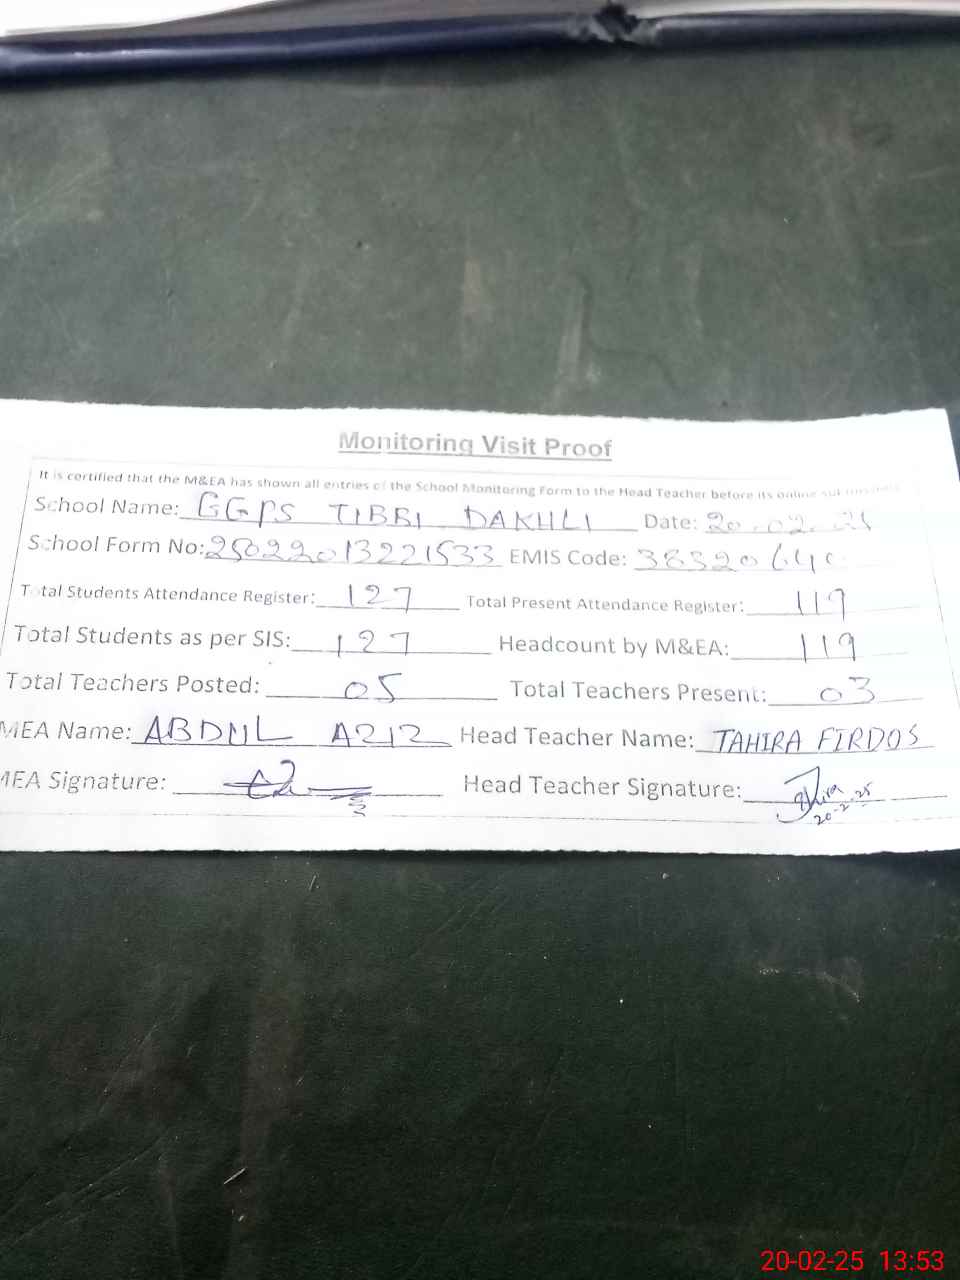 Monitoring Visit Proof
It is certified that the M&EA has shown all entries of the School Monitoring Form to the Head Teacher before its online submission
School Name: GGPS TIBBI DAKHLI Date: 20.02.25
School Form No: 25022013221533 EMIS Code: 38320640
Total Students Attendance Register: 127 Total Present Attendance Register: 119
Total Students as per SIS: 127 Headcount by M&EA: 119
Total Teachers Posted: 05 Total Teachers Present: 03
MEA Name: ABDUL AZIZ Head Teacher Name: TAHIRA FIRDOS
MEA Signature: Head Teacher Signature:
20-2-25
20-02-25 13:53